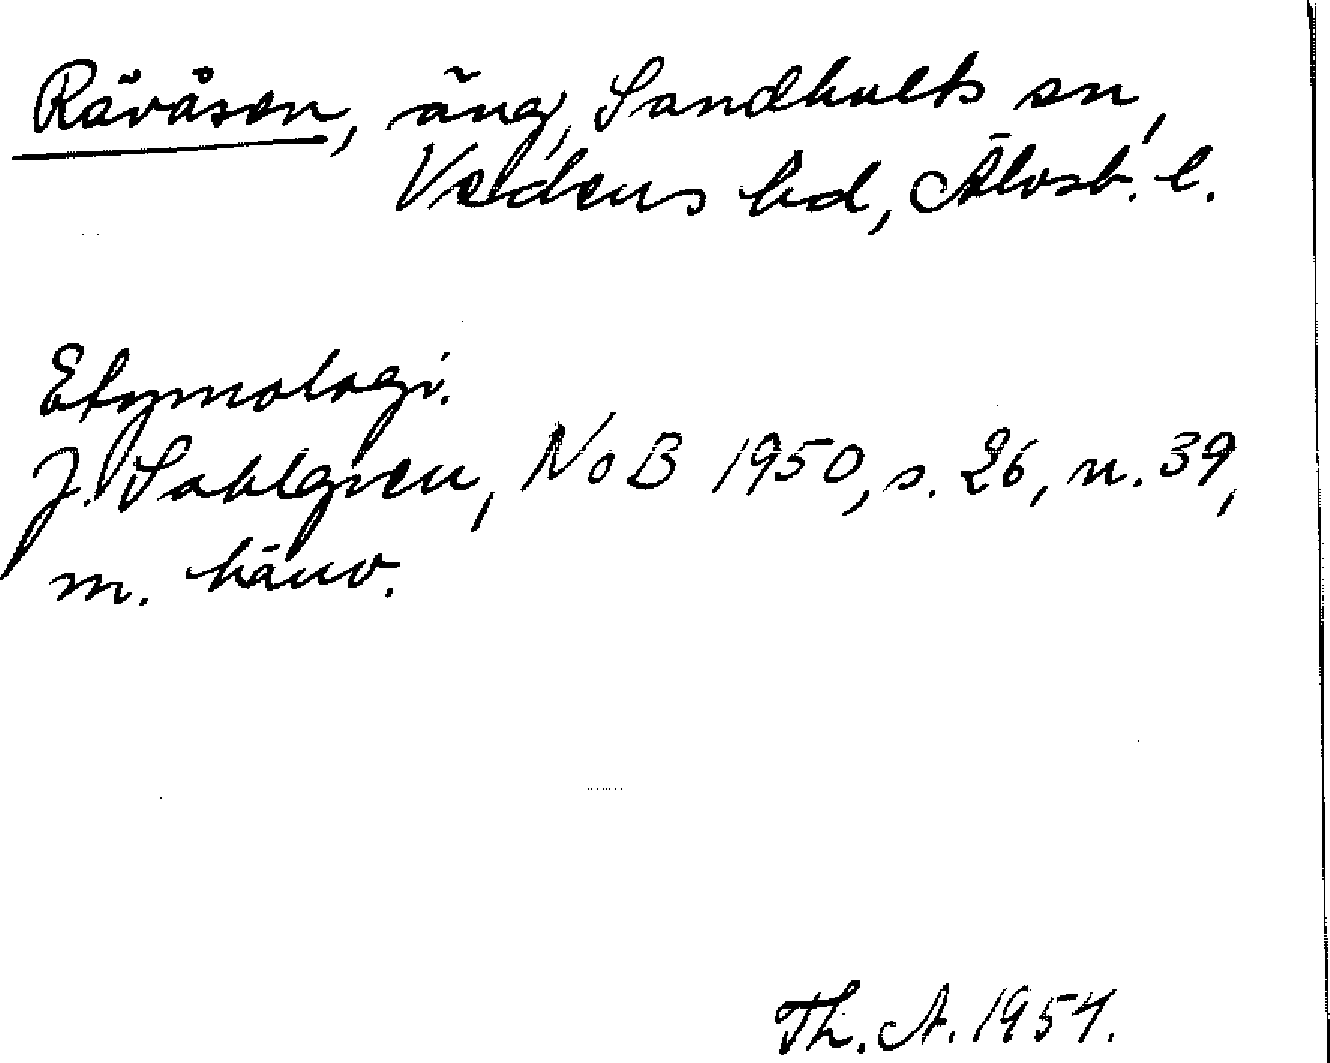 Rävåsen, äng, Sandhults sn,
Vedens hd, Älvsb. l.
Etymologi.
J. Sahlgren, NoB 1950, s. 26, n. 39,
m. hänv.
Th. A. 1954.